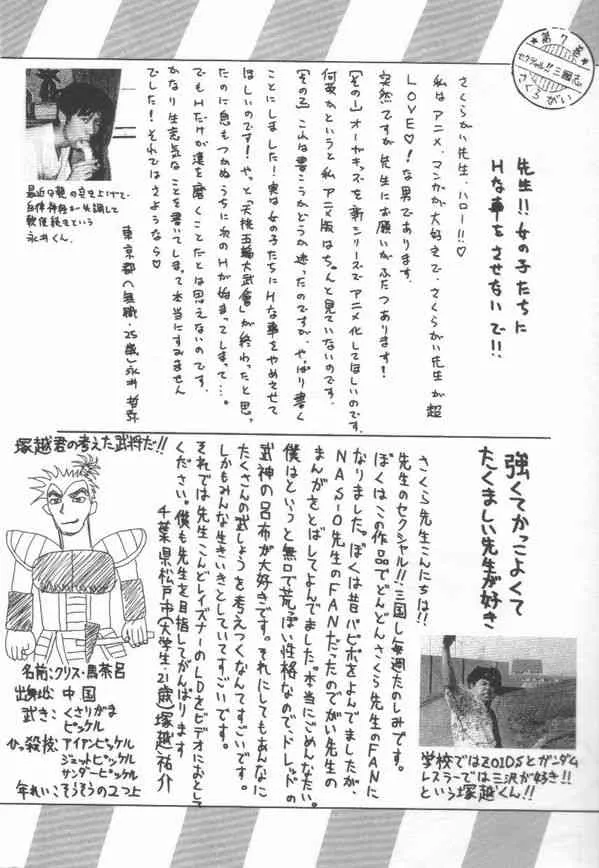 ★第7巻★
セクシャル!!三國志
さくらがい
先生!!女の子たちに
Hな事をさせないで!!
さくらがい先生、ハロー!!♡
私はアニメ、マンガが大好きで、さくらがい先生が超
LOVE♡!な男であります。
突然ですが先生にお願いがふたつあります!
[その1]オーキッズを新シリーズでアニメ化してほしいのです。
何故かというと私アニメ版はちゃんと見ていないのです。
[その2]これは書こうかどうか迷ったのですが、やっぱり書く
ことにしました!実は女の子たちにHな事をやめさせて
ほしいのです!やっと「天桃五輪大武會」が終わったと思っ
たのに息もつかぬうちに次のHが始まってしまって…。
でもHだけが漢を磨くことだとは思えないのです。
かなり生意気なことを書いてしまって本当にすみません
でした!それではさようなら♡
東京都(無職・25歳)永井哲弥
最近日頃の
自律神経が失調して
永井くん。
強くてかっこよくて
たくましい先生が好き
さくら先生こんにちは!!
先生のセクシャル!!三国し毎週たのしみです。
ぼくはこの作品でどんどんさくら先生のFANに
なりました。ぼくは昔パピポをよんでましたが、
NAS-O先生のFANだったのでがい先生の
まんがをとばしてよんでました。本当にごめんなさい。
僕はというと無口で荒っぽい性格なので、ドレッドの
武神の呂布が大好きです。それにしてもあんなに
たくさんの武しょうを考えつくなんてすごいです。
しかもみんな生きいきとしていてすごいです。
それでは先生こんどレイズナーのLDをビデオにおとして
ください。僕も先生を目指してがんばります
千葉県松戸市(大学生・21歳)塚越祐介
学校ではZOIDSとガンダム
レスラーでは三沢が好き!!
という塚越くん!!
塚越君の考えた武将だ!!
名前:クリス・馬茶呂
出身地:中国
武き:くさりがま
ピッケル
ひっ殺技:アイアンピッケル
ジェットピッケル
サンダーピッケル
年れい:そうそうの2つ上